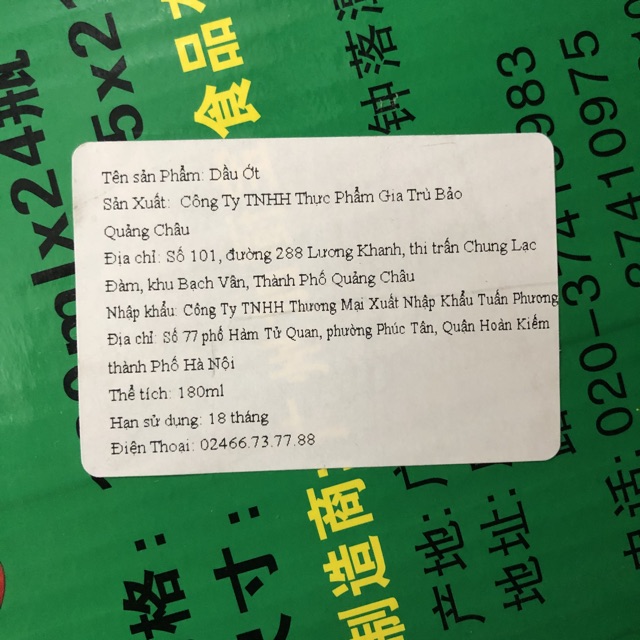 Tên sản Phẩm: Dầu Ớt
Sản Xuất: Công Ty TNHH Thực Phẩm Gia Trù Bảo
Quảng Châu
Địa chỉ: Số 101, đường 288 Lương Khanh, thi trấn Chung Lạc
Đàm, khu Bạch Vân, Thành Phố Quảng Châu
Nhập khẩu: Công Ty TNHH Thương Mại Xuất Nhập Khẩu Tuấn Phương
Địa chỉ: Số 77 phố Hàm Tử Quan, phường Phúc Tân, Quận Hoàn Kiếm
thành Phố Hà Nội
Thể tích: 180ml
Hạn sử dụng: 18 tháng
Điện Thoại: 02466.73.77.88
mlx24瓶
5x21
食品
钟落潭
格:
寸:
制造商:
产地:广
地址:
电话: 020-3741
0983
87410975